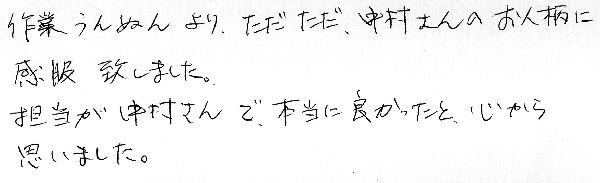 作業うんぬんより、ただただ、中村さんのお人柄に
感服致しました。
担当が中村さんで、本当に良かったと、心から
思いました。